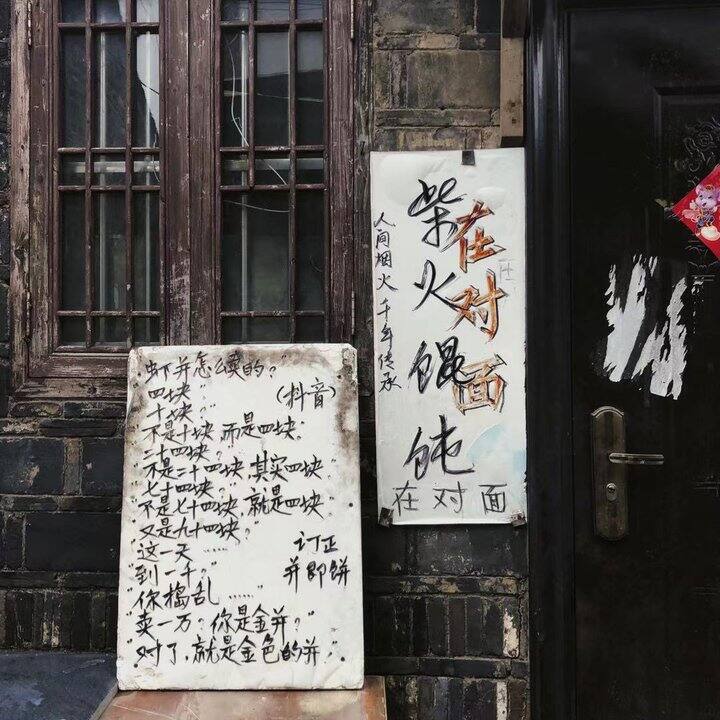 "虾并怎么卖的?"
"四块"
"十块?"
(抖音)
"不是十块,而是四块."
"二十四块?"
"不是二十四块,其实四块"
"七十四块?"
"不是七十四块,就是四块"
"又是九十四块?"
"这一天……
"到一千?"
"你捣乱……"
"卖一万?你是金并?"
"对了,就是金色的并."
订正
并即饼
柴火馄饨
在对面
人间烟火千年传承
在对面